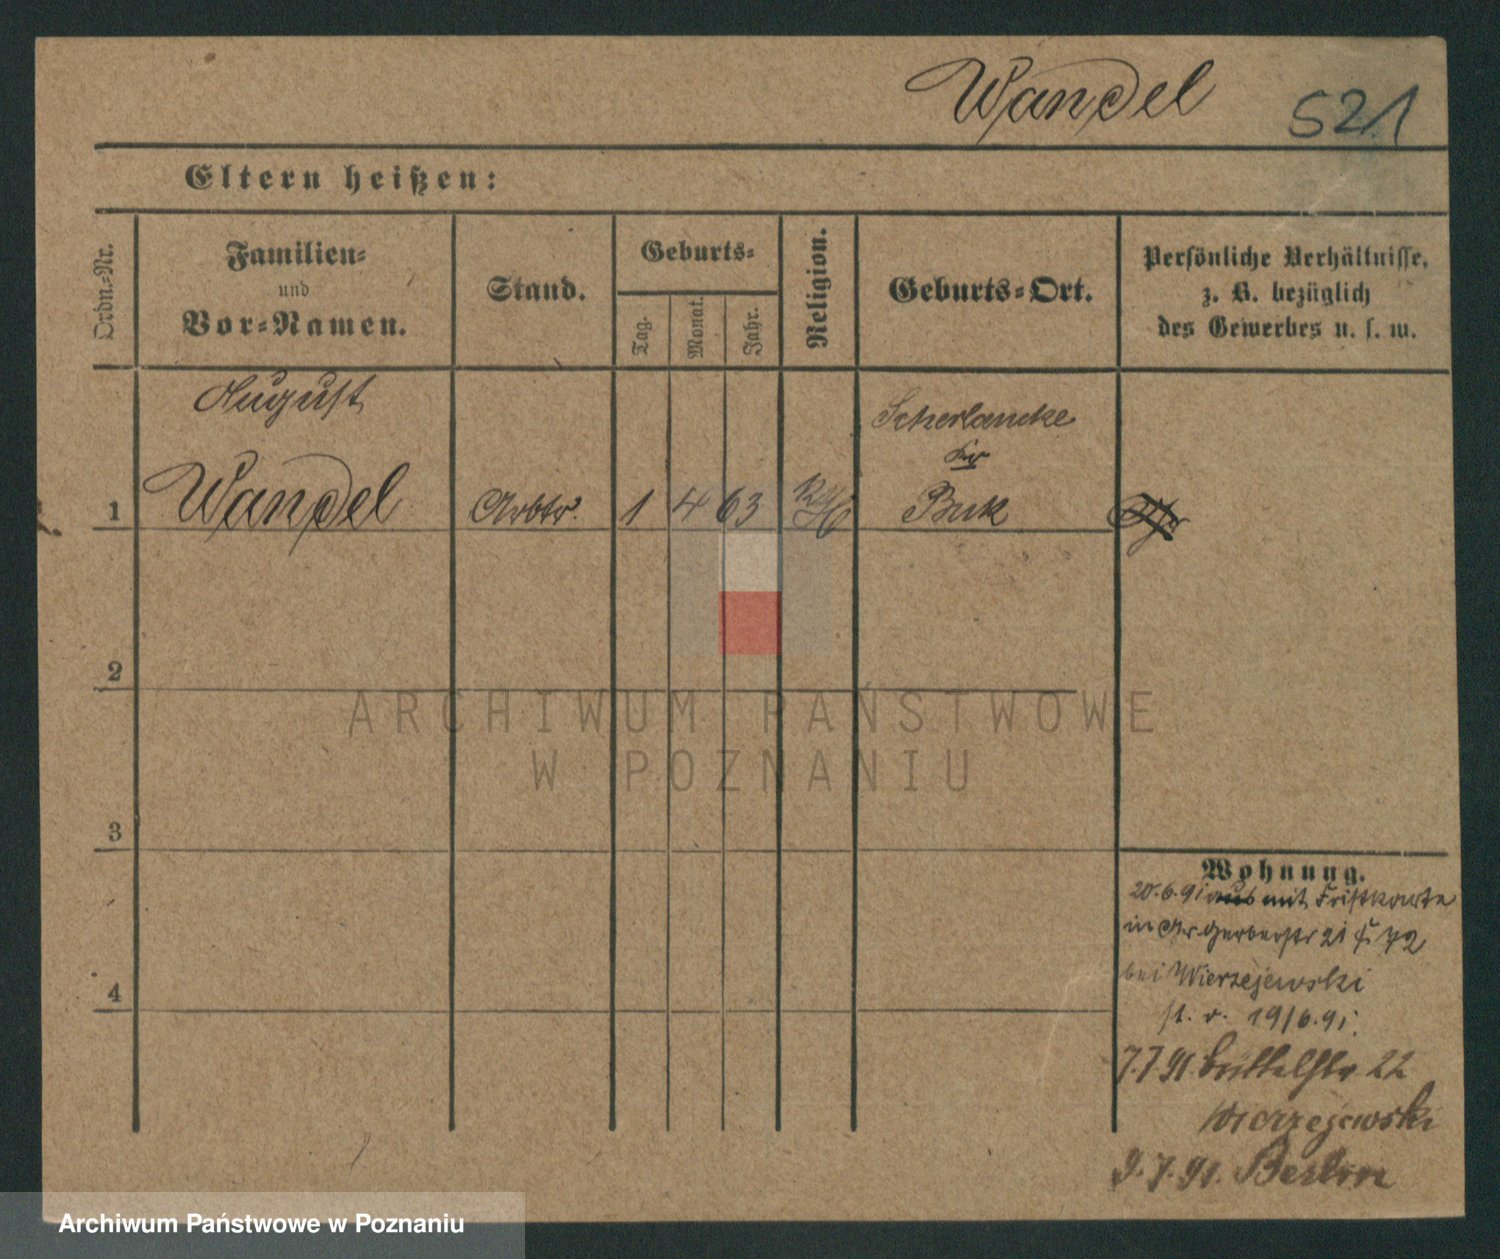 Wandel 521
Eltern heißen:
Ordn.-Nr.
Familien-
und
Vor-Namen.
Stand.
Geburts-
Tag.
Monat.
Jahr.
Religion.
Geburts-Ort.
Persönliche Verhältnisse,
z. B. bezüglich
des Gewerbes u. s. w.
August
Scherlancke
Kr
1 Wandel Arbtr. 1 4 63 Buk
2
ARCHIWUM PAŃSTWOWE
W POZNANIU
3
Wohnung.
20.6.91 aus mit Fristkarte
in Gr. Gerberstr 21 72
bei Wierzejewski
4
st. v. 19/6.91.
7.7.91 Büttelstr 22
Wierzejewski
9.7.91. Berlin
Archiwum Państwowe w Poznaniu